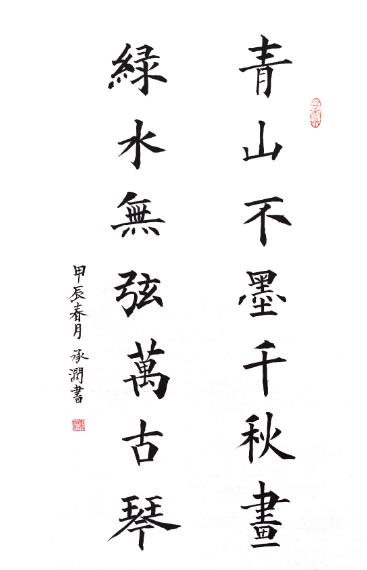 青山不墨千秋畫
緑水無弦萬古琴
甲辰春月 承潤書